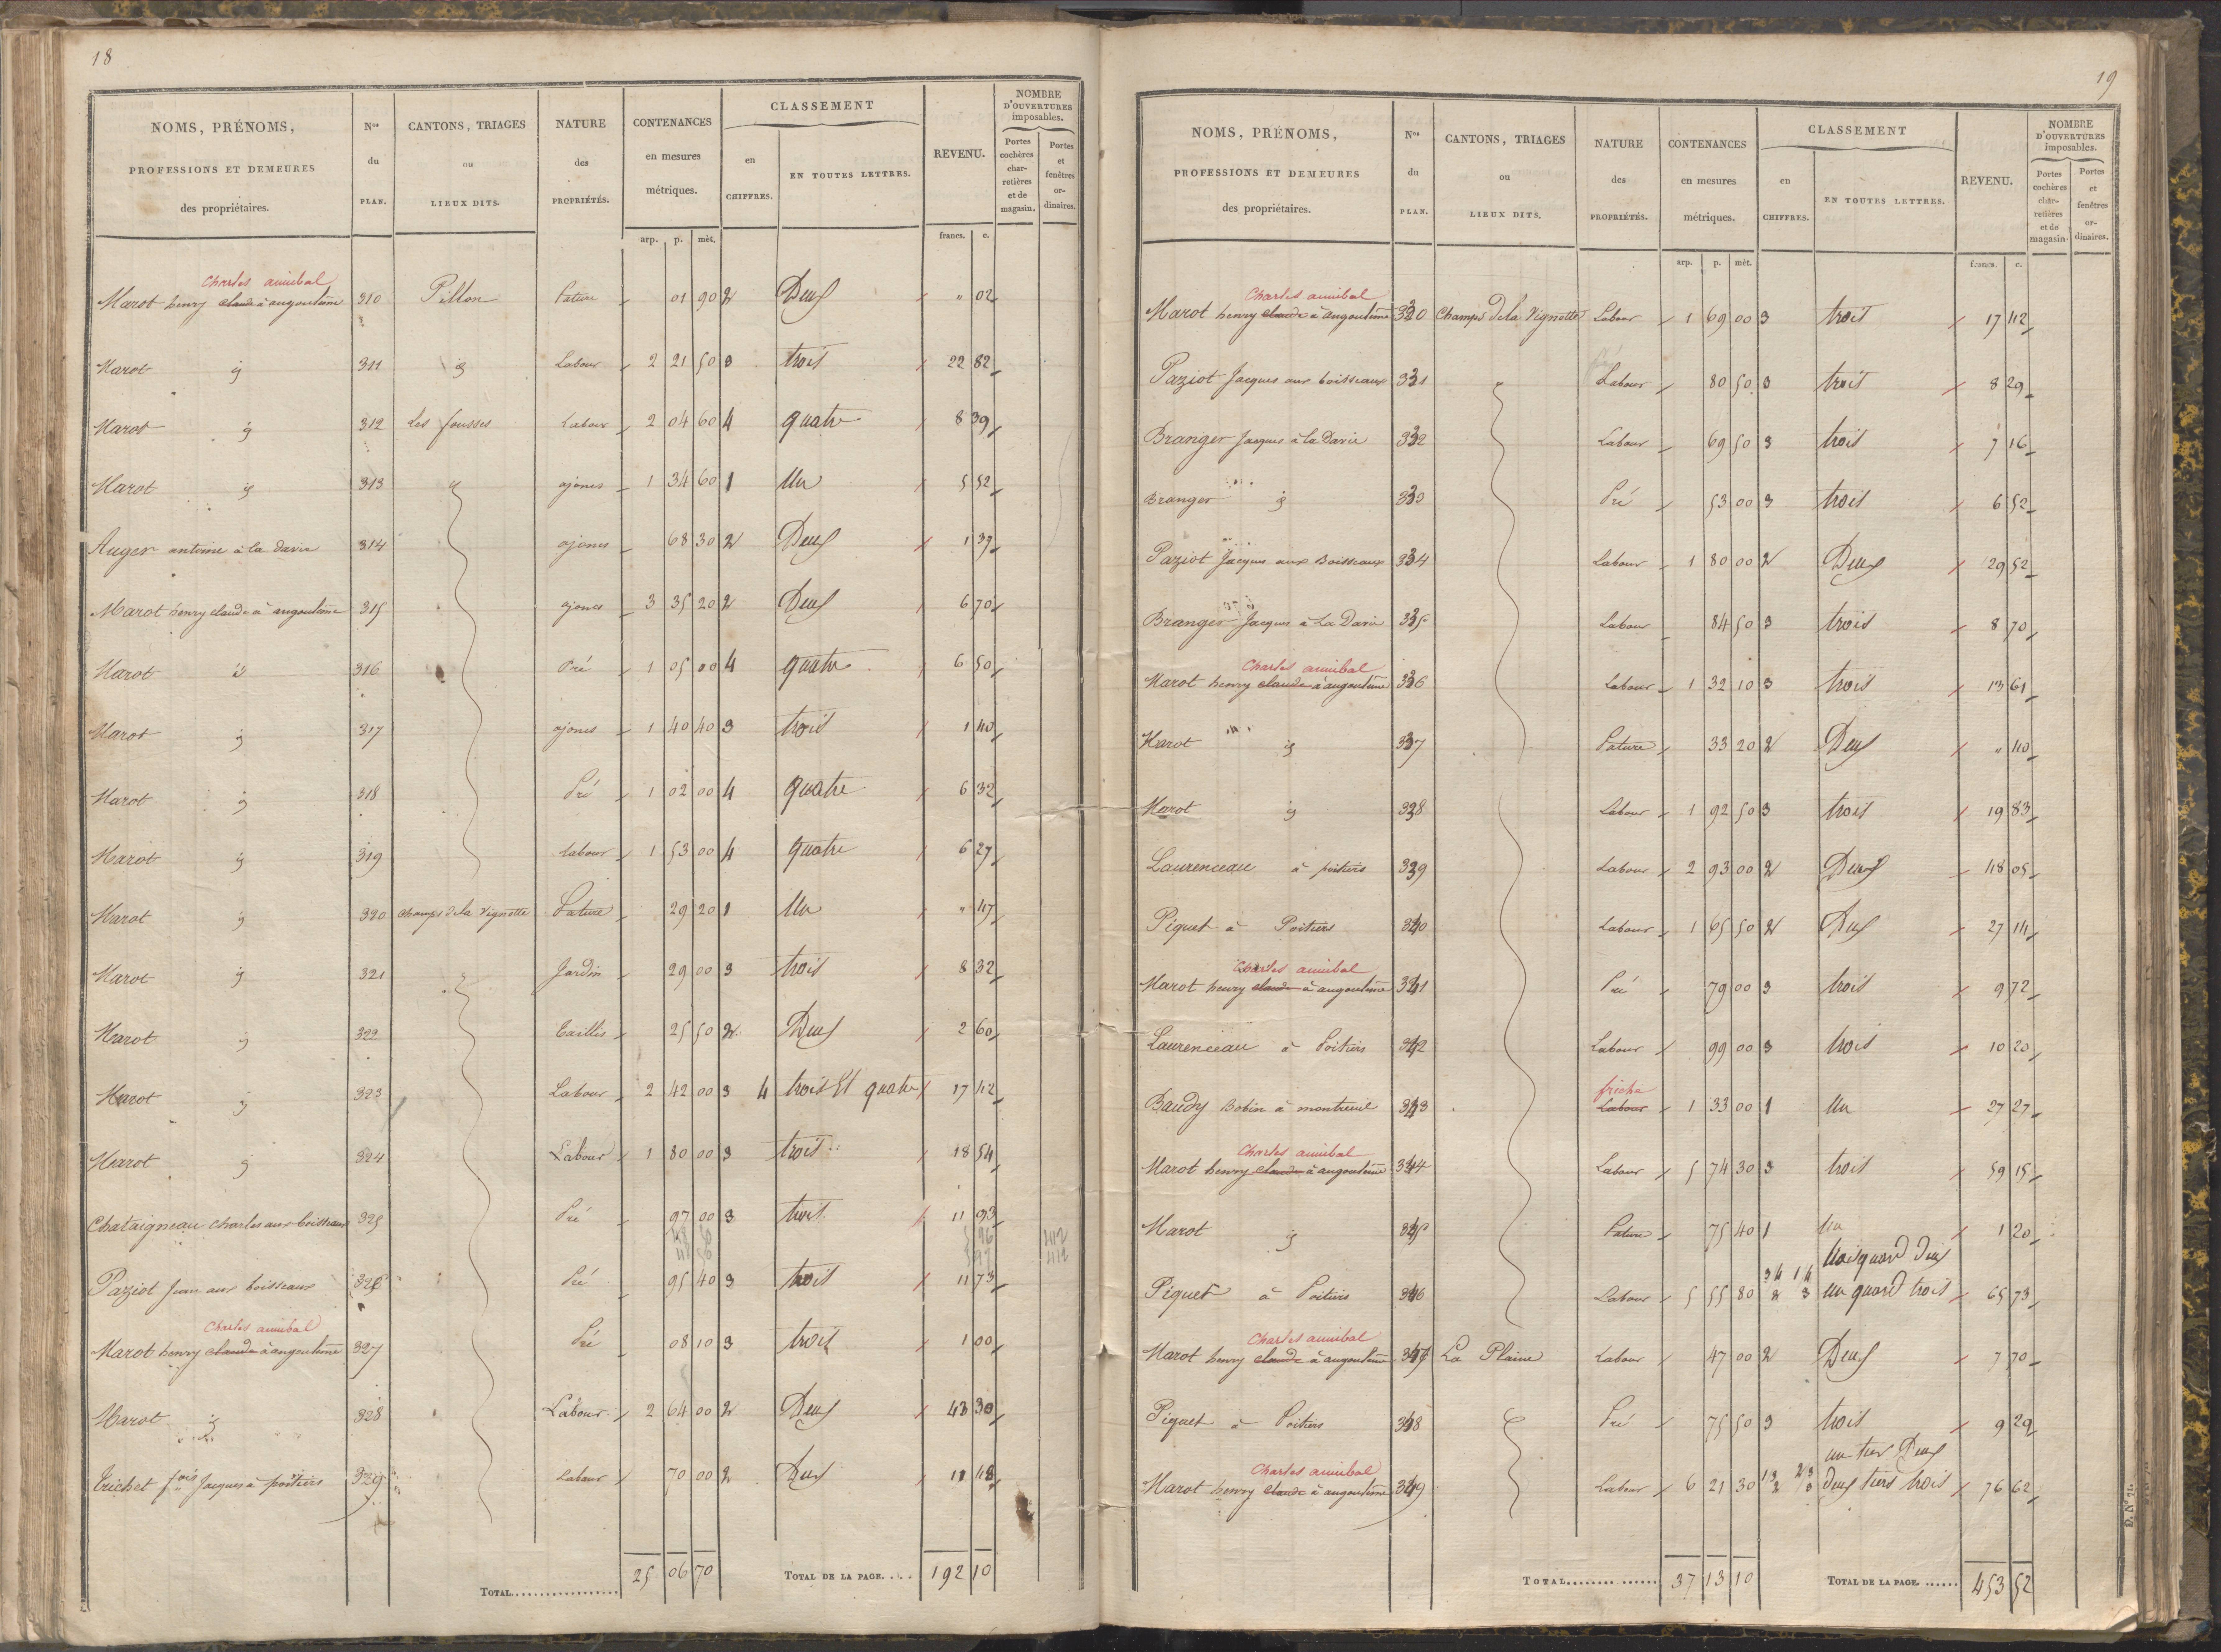 18
NOMS, PRÉNOMS, PROFESSIONS ET DEMEURES des propriétaires. Nos du PLAN. CANTONS, TRIAGES ou LIEUX DITS. NATURE des PROPRIÉTÉS. CONTENANCES en mesures métriques. CLASSEMENT en CHIFFRES. EN TOUTES LETTRES. REVENU. NOMBRE D'OUVERTURES imposables. Portes cochères charretières et de magasin. Portes et fenêtres ordinaires.
arp. p. mèt. francs. c.
Charles annibal
Marot henry claude à angoulême 310 Pillon Pature 01 90 2 Deux " 02
Marot id 311 id Labour 2 21 50 3 trois 22 82
Marot id 312 Les fousses Labour 2 04 60 4 quatre 8 39
Marot id 313 id ajoncs 1 34 60 1 Un 5 52
Auger antoine à la davie 314 ajoncs 68 30 2 Deux 1 37
Marot henry claude à angoulême 315 ajoncs 3 35 20 2 Deux 6 70
Marot id 316 Pré 1 05 00 4 quatre 6 50
Marot id 317 ajoncs 1 40 40 3 trois 1 40
Marot id 318 Pré 1 02 00 4 quatre 6 32
Marot id 319 Labour 1 53 00 4 quatre 6 27
Marot id 320 champs de la Vignotte Pature 29 20 1 Un " 47
Marot id 321 Jardin 29 00 3 trois 8 32
Marot id 322 Taillis 25 50 2 Deux 2 60
Marot id 323 Labour 2 42 00 3 4 trois Et quatre 17 42
Marot id 324 Labour 1 80 00 3 trois 18 54
Chataigneau charles aux boisseaux 325 Pré 97 00 3 trois 11 93
Paziot Jean aux boisseaux 326 Pré 95 40 3 trois 11 73
Charles annibal
Marot henry claude à angoulême 327 Pré 08 10 3 trois 1 00
Marot id 328 Labour 2 64 00 2 Deux 43 30
Trichet fois Jacques à poitiers 329 Labour 70 00 2 Deux 11 48
TOTAL 25 06 70 TOTAL DE LA PAGE 192 10
19
NOMS, PRÉNOMS, PROFESSIONS ET DEMEURES des propriétaires. Nos du PLAN. CANTONS, TRIAGES ou LIEUX DITS. NATURE des PROPRIÉTÉS. CONTENANCES en mesures métriques. CLASSEMENT en CHIFFRES. EN TOUTES LETTRES. REVENU. NOMBRE D'OUVERTURES imposables. Portes cochères charretières et de magasin. Portes et fenêtres ordinaires.
arp. p. mèt. francs. c.
Charles annibal
Marot henry claude à angoulême 330 Champs de la Vignotte Labour 1 69 00 3 trois 17 42
Paziot Jacques aux boisseaux 331 Labour 80 50 3 trois 8 29
Branger Jacques à la Davie 332 Labour 69 50 3 trois 7 16
Branger id 333 Pré 53 00 3 trois 6 52
Paziot Jacques aux Boisseaux 334 Labour 1 80 00 2 Deux 29 52
Branger Jacques à La Davie 335 Labour 84 50 3 trois 8 70
Charles annibal
Marot henry claude à angoulême 336 Labour 1 32 10 3 trois 13 61
Marot id 337 Pature 33 20 2 Deux " 40
Marot id 338 Labour 1 92 50 3 trois 19 83
Laurenceau à poitiers 339 Labour 2 93 00 2 Deux 48 05
Piquet à Poitiers 340 Labour 1 65 50 2 Deux 27 14
Charles annibal
Marot henry claude à angoulême 341 Pré 79 00 3 trois 9 72
Laurenceau à Poitiers 342 Labour 99 00 3 trois 10 20
friche
Baudy Bobin à montreuil 343 Labour 1 33 00 1 Un 27 27
Charles annibal
Marot henry claude à angoulême 344 Labour 5 74 30 3 trois 59 15
Marot id 345 Pature 75 40 1 Un 1 20
3/4 1/4 trois quard deux
Piquet à Poitiers 346 Labour 5 55 80 2 3 un quard trois 65 73
Charles annibal
Marot henry claude à angoulême 347 La Plaine Labour 47 00 2 Deux 7 70
Piquet à Poitiers 348 Pré 75 50 3 trois 9 29
Charles annibal 1/3 2/3 un tier Deux
Marot henry claude à angoulême 349 Labour 6 21 30 2 3 deux tiers trois 76 62
TOTAL 37 13 10 TOTAL DE LA PAGE 453 52